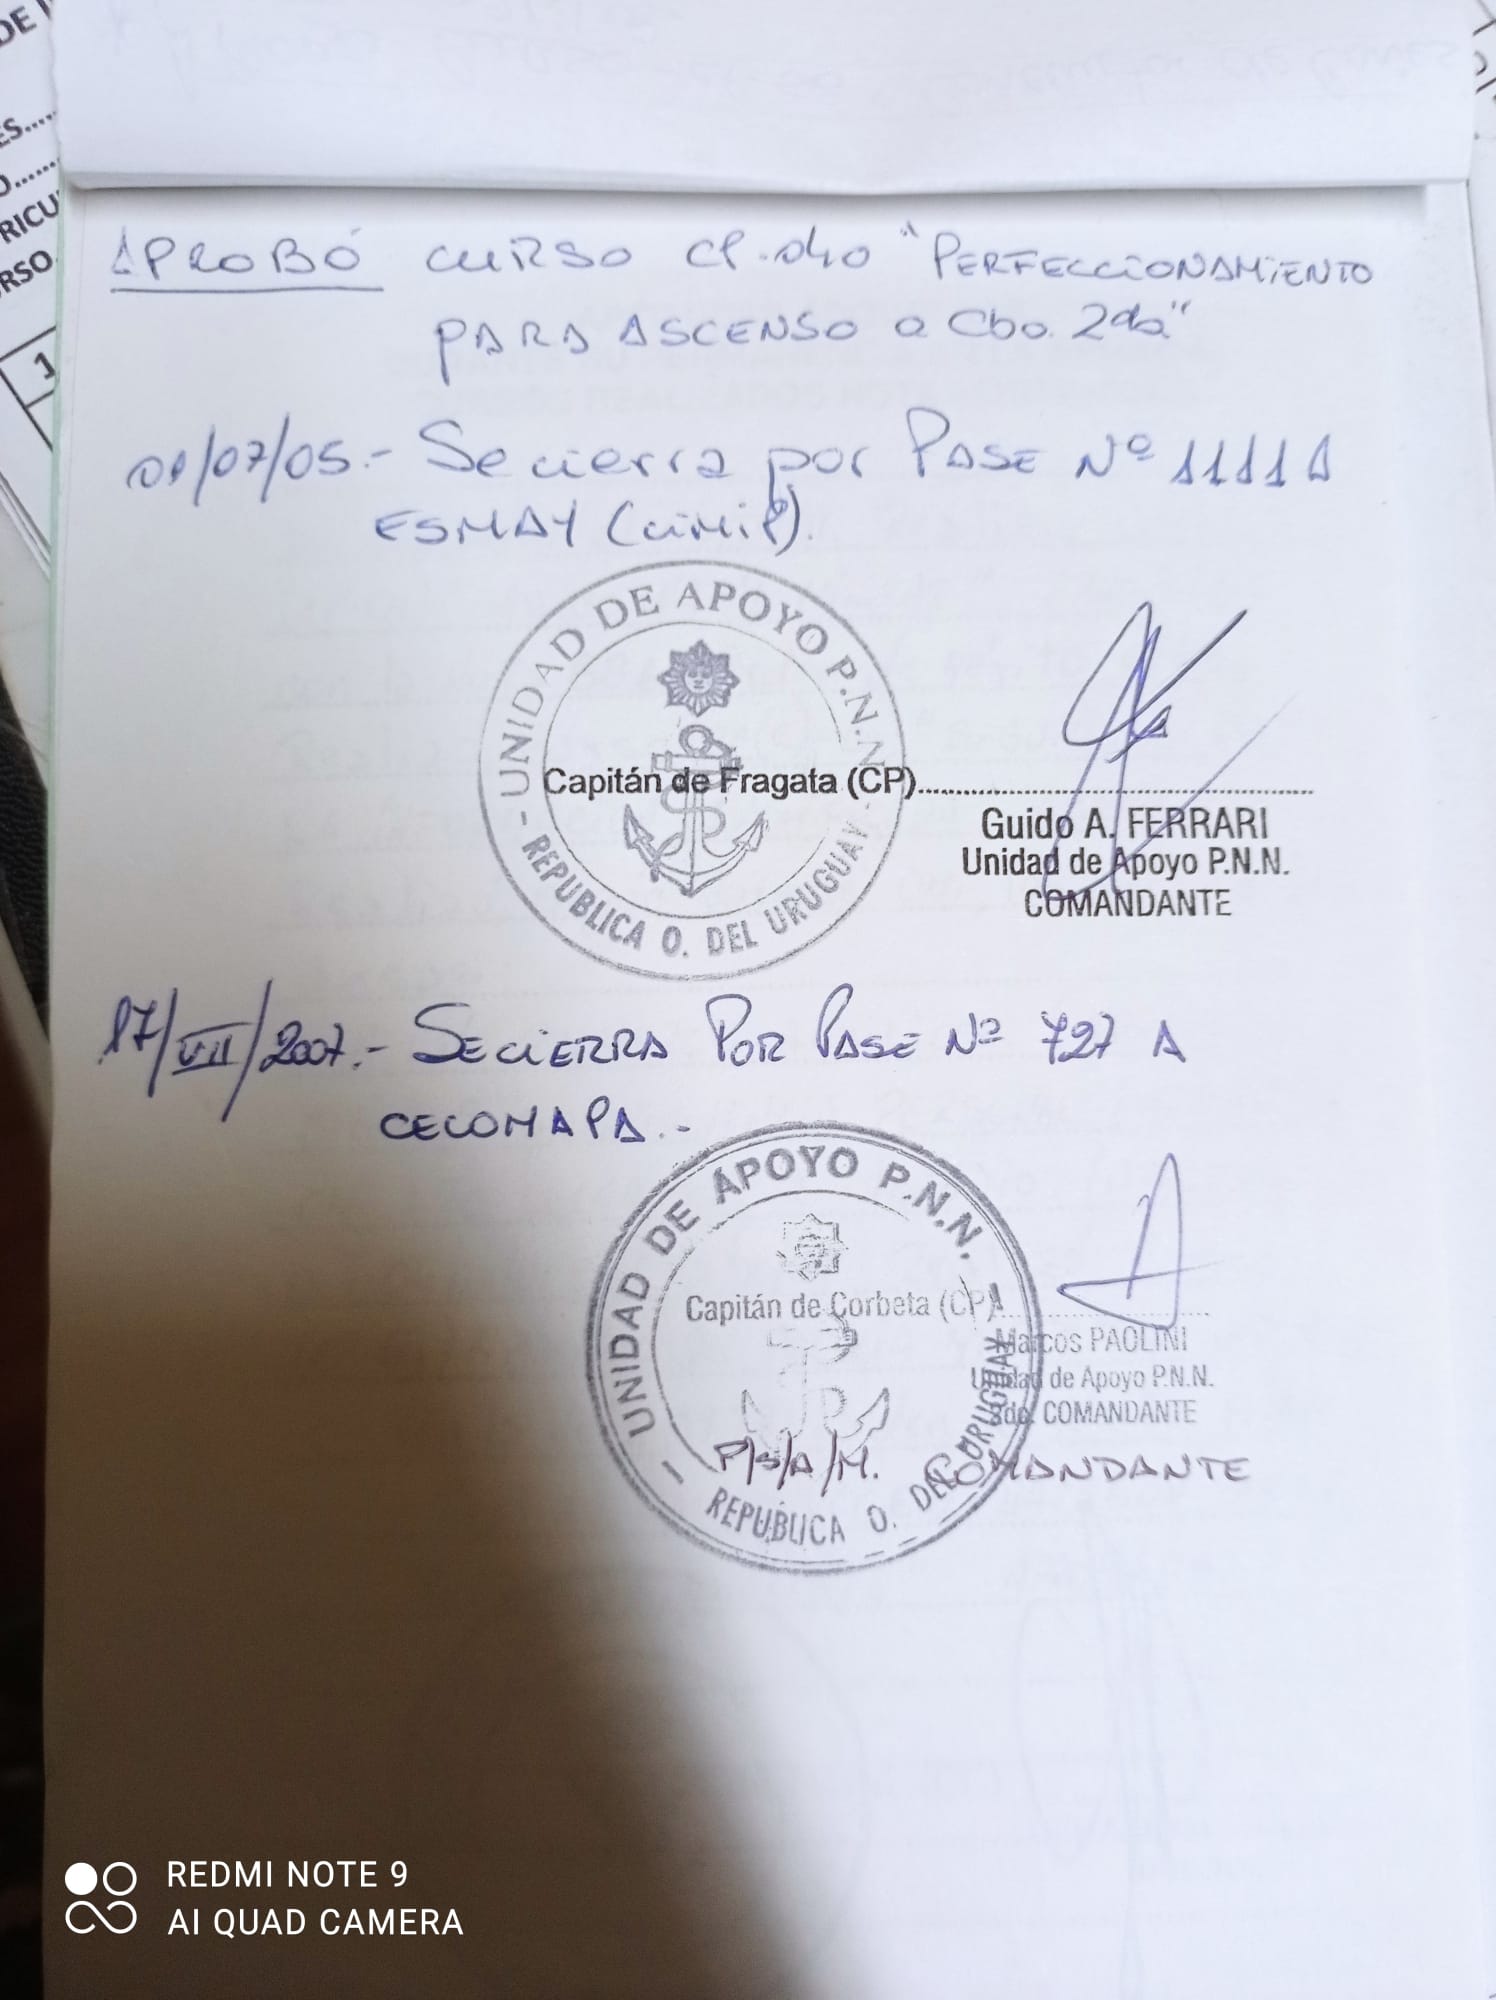 DE
ES.....
O.......
RICU
RSO
1
APROBÓ CURSO CP.040 "PERFECCIONAMIENTO
PARA ASCENSO a Cbo. 2da"
01/07/05.- Se cierra por PASE Nº 1111 A
ESMAY (CIMIP).
- UNIDAD DE APOYO P.N.N. -
REPUBLICA O. DEL URUGUAY
Capitán de Fragata (CP)..............................
Guido A. FERRARI
Unidad de Apoyo P.N.N.
COMANDANTE
17/VII/2007.- SE CIERRA POR PASE Nº 727 A
CECOMAPA.-
- UNIDAD DE APOYO P.N.N. -
REPUBLICA O. DEL URUGUAY
Capitán de Corbeta (CP)..............................
Marcos PAOLINI
Unidad de Apoyo P.N.N.
2do. COMANDANTE
P/S/A/M. COMANDANTE
REDMI NOTE 9
AI QUAD CAMERA